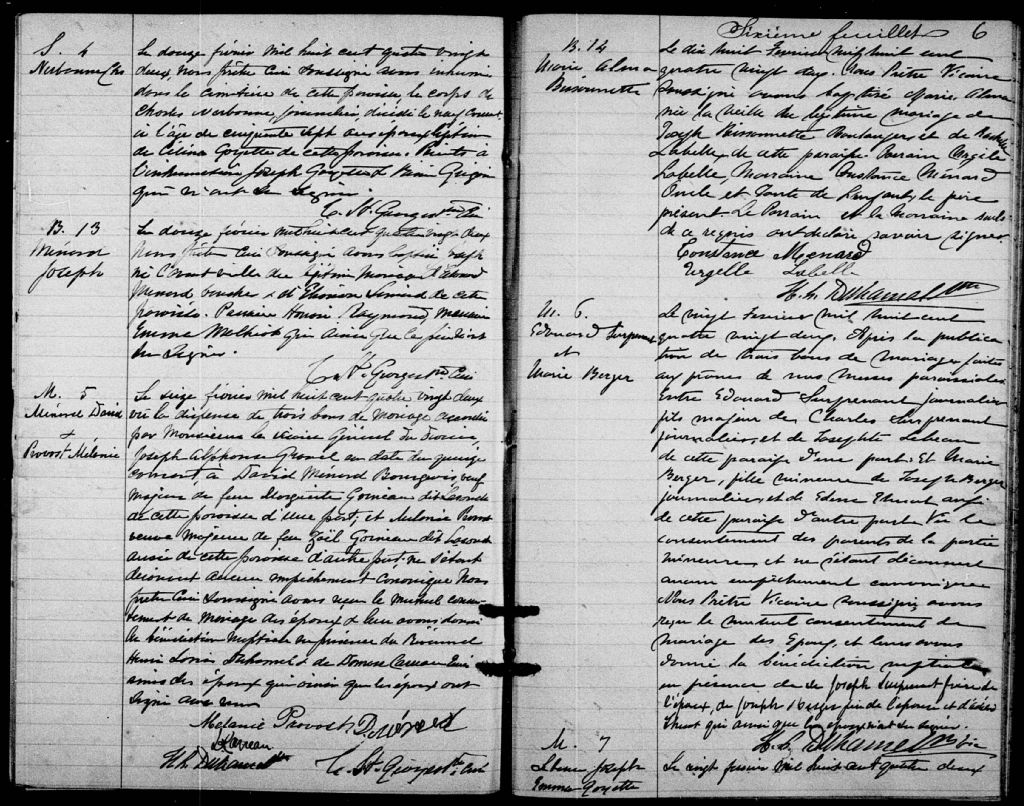 S. 4
Narbonne Chs
Le douze février mil huit cent quatre vingt
deux nous Prêtre Curé soussigné avons inhumé
dans le cimetière de cette paroisse le corps de
Charles Narbonne, journalier, décédé le neuf courant
à l'âge de cinquante sept ans époux légitime
de Célina Goyette de cette paroisse. Présents à
l'inhumation Joseph Goyette &
qui n'ont su signer.
C. St Georges Ptre Curé
B. 13
Ménard
Joseph
Le douze février mil huit cent quatre vingt deux
nous Prêtre Curé soussigné avons baptisé Joseph
né la veille du légitime mariage d'Edouard
Ménard boucher & d'Eliénor Simard de cette
paroisse. Parrain Henri Raymond, marraine
Emma qui ainsi que le père n'ont
su signer.
C. St Georges Ptre Curé
M. 5
Ménard David
&
Provost Mélanie
Le seize février mil huit cent quatre vingt deux
vu la dispense de trois bans de mariage accordée
par Monsieur le vicaire Général du diocèse
Joseph Alphonse Gravel en date du quinze
courant, à David Ménard Bourgeois, veuf
majeur de feue Marguerite Gorneau dit
de cette paroisse d'une part; et Mélanie Provost
veuve majeure de feu Joël Gorneau dit
aussi de cette paroisse d'autre part: ne s'étant
découvert aucun empêchement canonique nous
Prêtre Curé soussigné avons reçu le mutuel consen-
tement de mariage des époux & leur avons donné
la bénédiction nuptiale en présence du Révérend
Henri Louis Duhamel & de Carreau
amis des époux qui ainsi que les époux ont
signé avec nous
Mélanie Provost D Ménard
Carreau
H. L. Duhamel Ptre C. St Georges Ptre Curé
Sixième feuillet 6
B. 14
Marie Alma
Bissonnette
Le dix huit Février mil huit cent
quatre vingt deux. Nous Prêtre Vicaire
soussigné avons baptisé Marie Alma
née la veille du légitime mariage de
Joseph Bissonnette Boulanger et de
Labelle de cette paroisse. Parrain Virgile
Labelle, Marraine Constance Ménard
Oncle et Tante de l'enfant, le père
présent. Le Parrain et la Marraine seuls
de ce requis ont déclaré savoir signer
Constance Menard
Vergelle Labelle
H. L. Duhamel Ptre
M. 6.
Edouard Surprenant
et
Marie Berger
Le vingt Février mil huit cent
quatre vingt deux. Après la publica-
tion de trois bans de mariage faites
aux prônes de nos messes paroissiales
Entre Edouard Surprenant journalier
fils majeur de Charles Surprenant
journalier, et de Josephte Lebeau
de cette paroisse d'une part: Et Marie
Berger, fille mineure de Joseph Berger
journalier, et de aussi
de cette paroisse d'autre part. Vu le
consentement des parents de la partie
mineure, et ne s'étant découvert
aucun empêchement canonique
Nous Prêtre Vicaire soussigné avons
reçu le mutuel consentement de
mariage des Epoux, et leur avons
donné la bénédiction nuptiale
en présence de Joseph Surprenant frère de
l'époux, de Joseph Berger père de l'épouse et
qui ainsi que les époux n'ont su signer.
H. L. Duhamel Ptre Vic
M. 7
Joseph
Emma Goyette
Le vingt février mil huit cent quatre deux